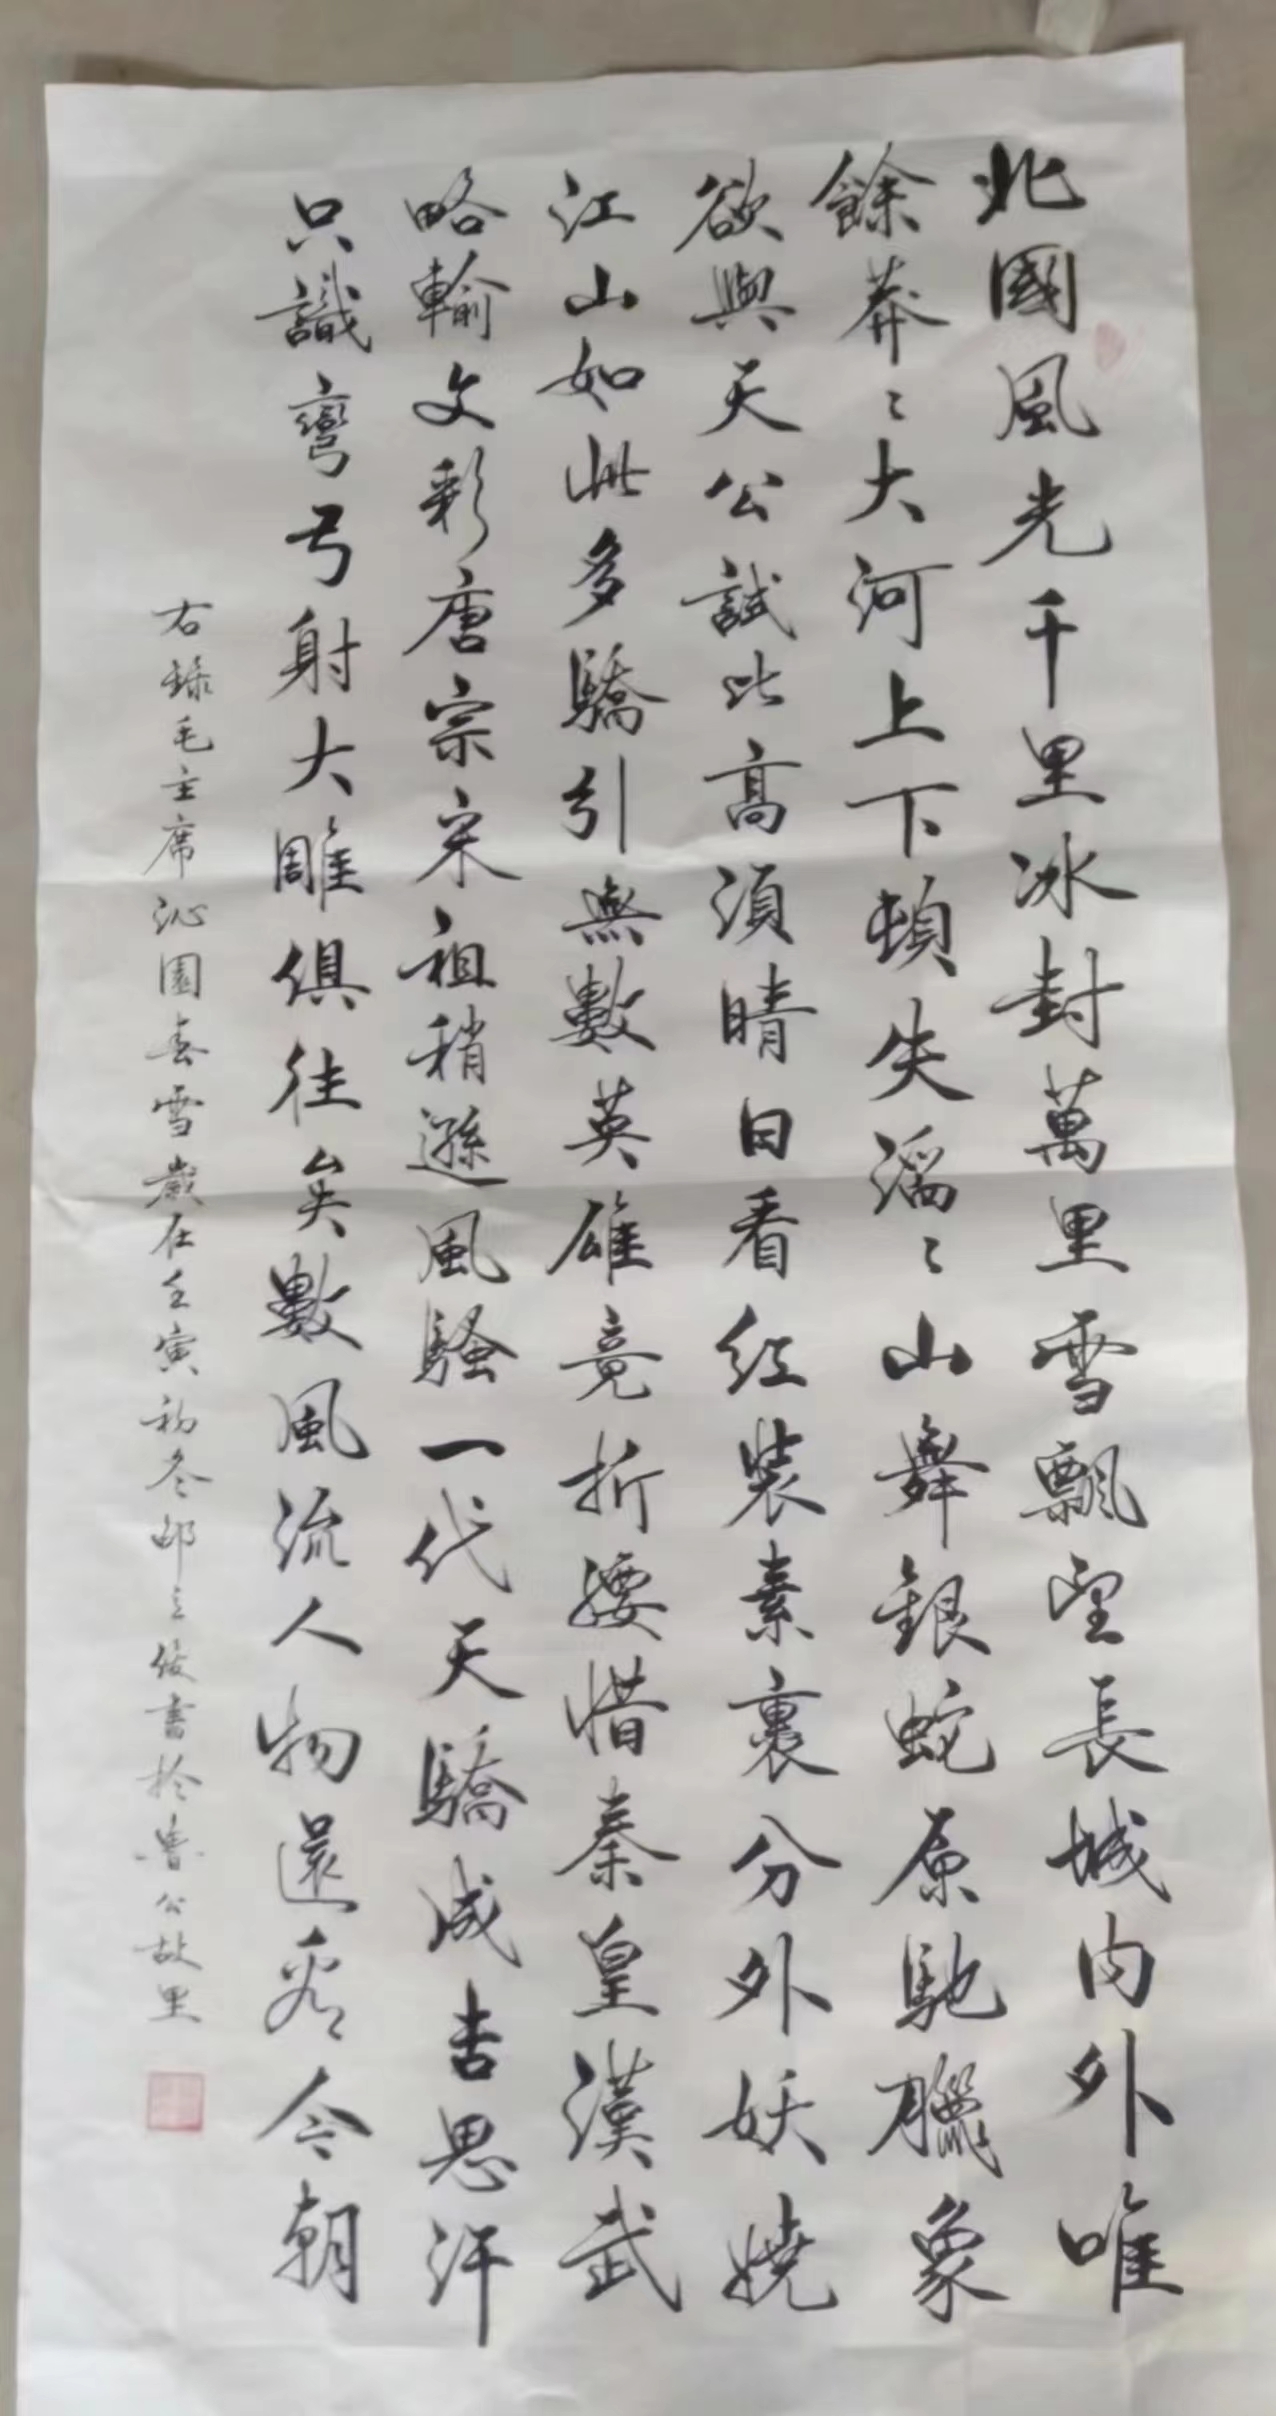 北國風光千里冰封萬里雪飄望長城内外唯
餘莽〻大河上下頓失滔〻山舞銀蛇原馳臘象
欲與天公試比高須晴日看紅裝素裹分外妖嬈
江山如此多驕引無數英雄竟折腰惜秦皇漢武
略輸文彩唐宗宋祖稍遜風騷一代天驕成吉思汗
只識彎弓射大雕俱往矣數風流人物還看今朝
右錄毛主席沁園春雪歲在壬寅初冬邱立俊書於魯公故里